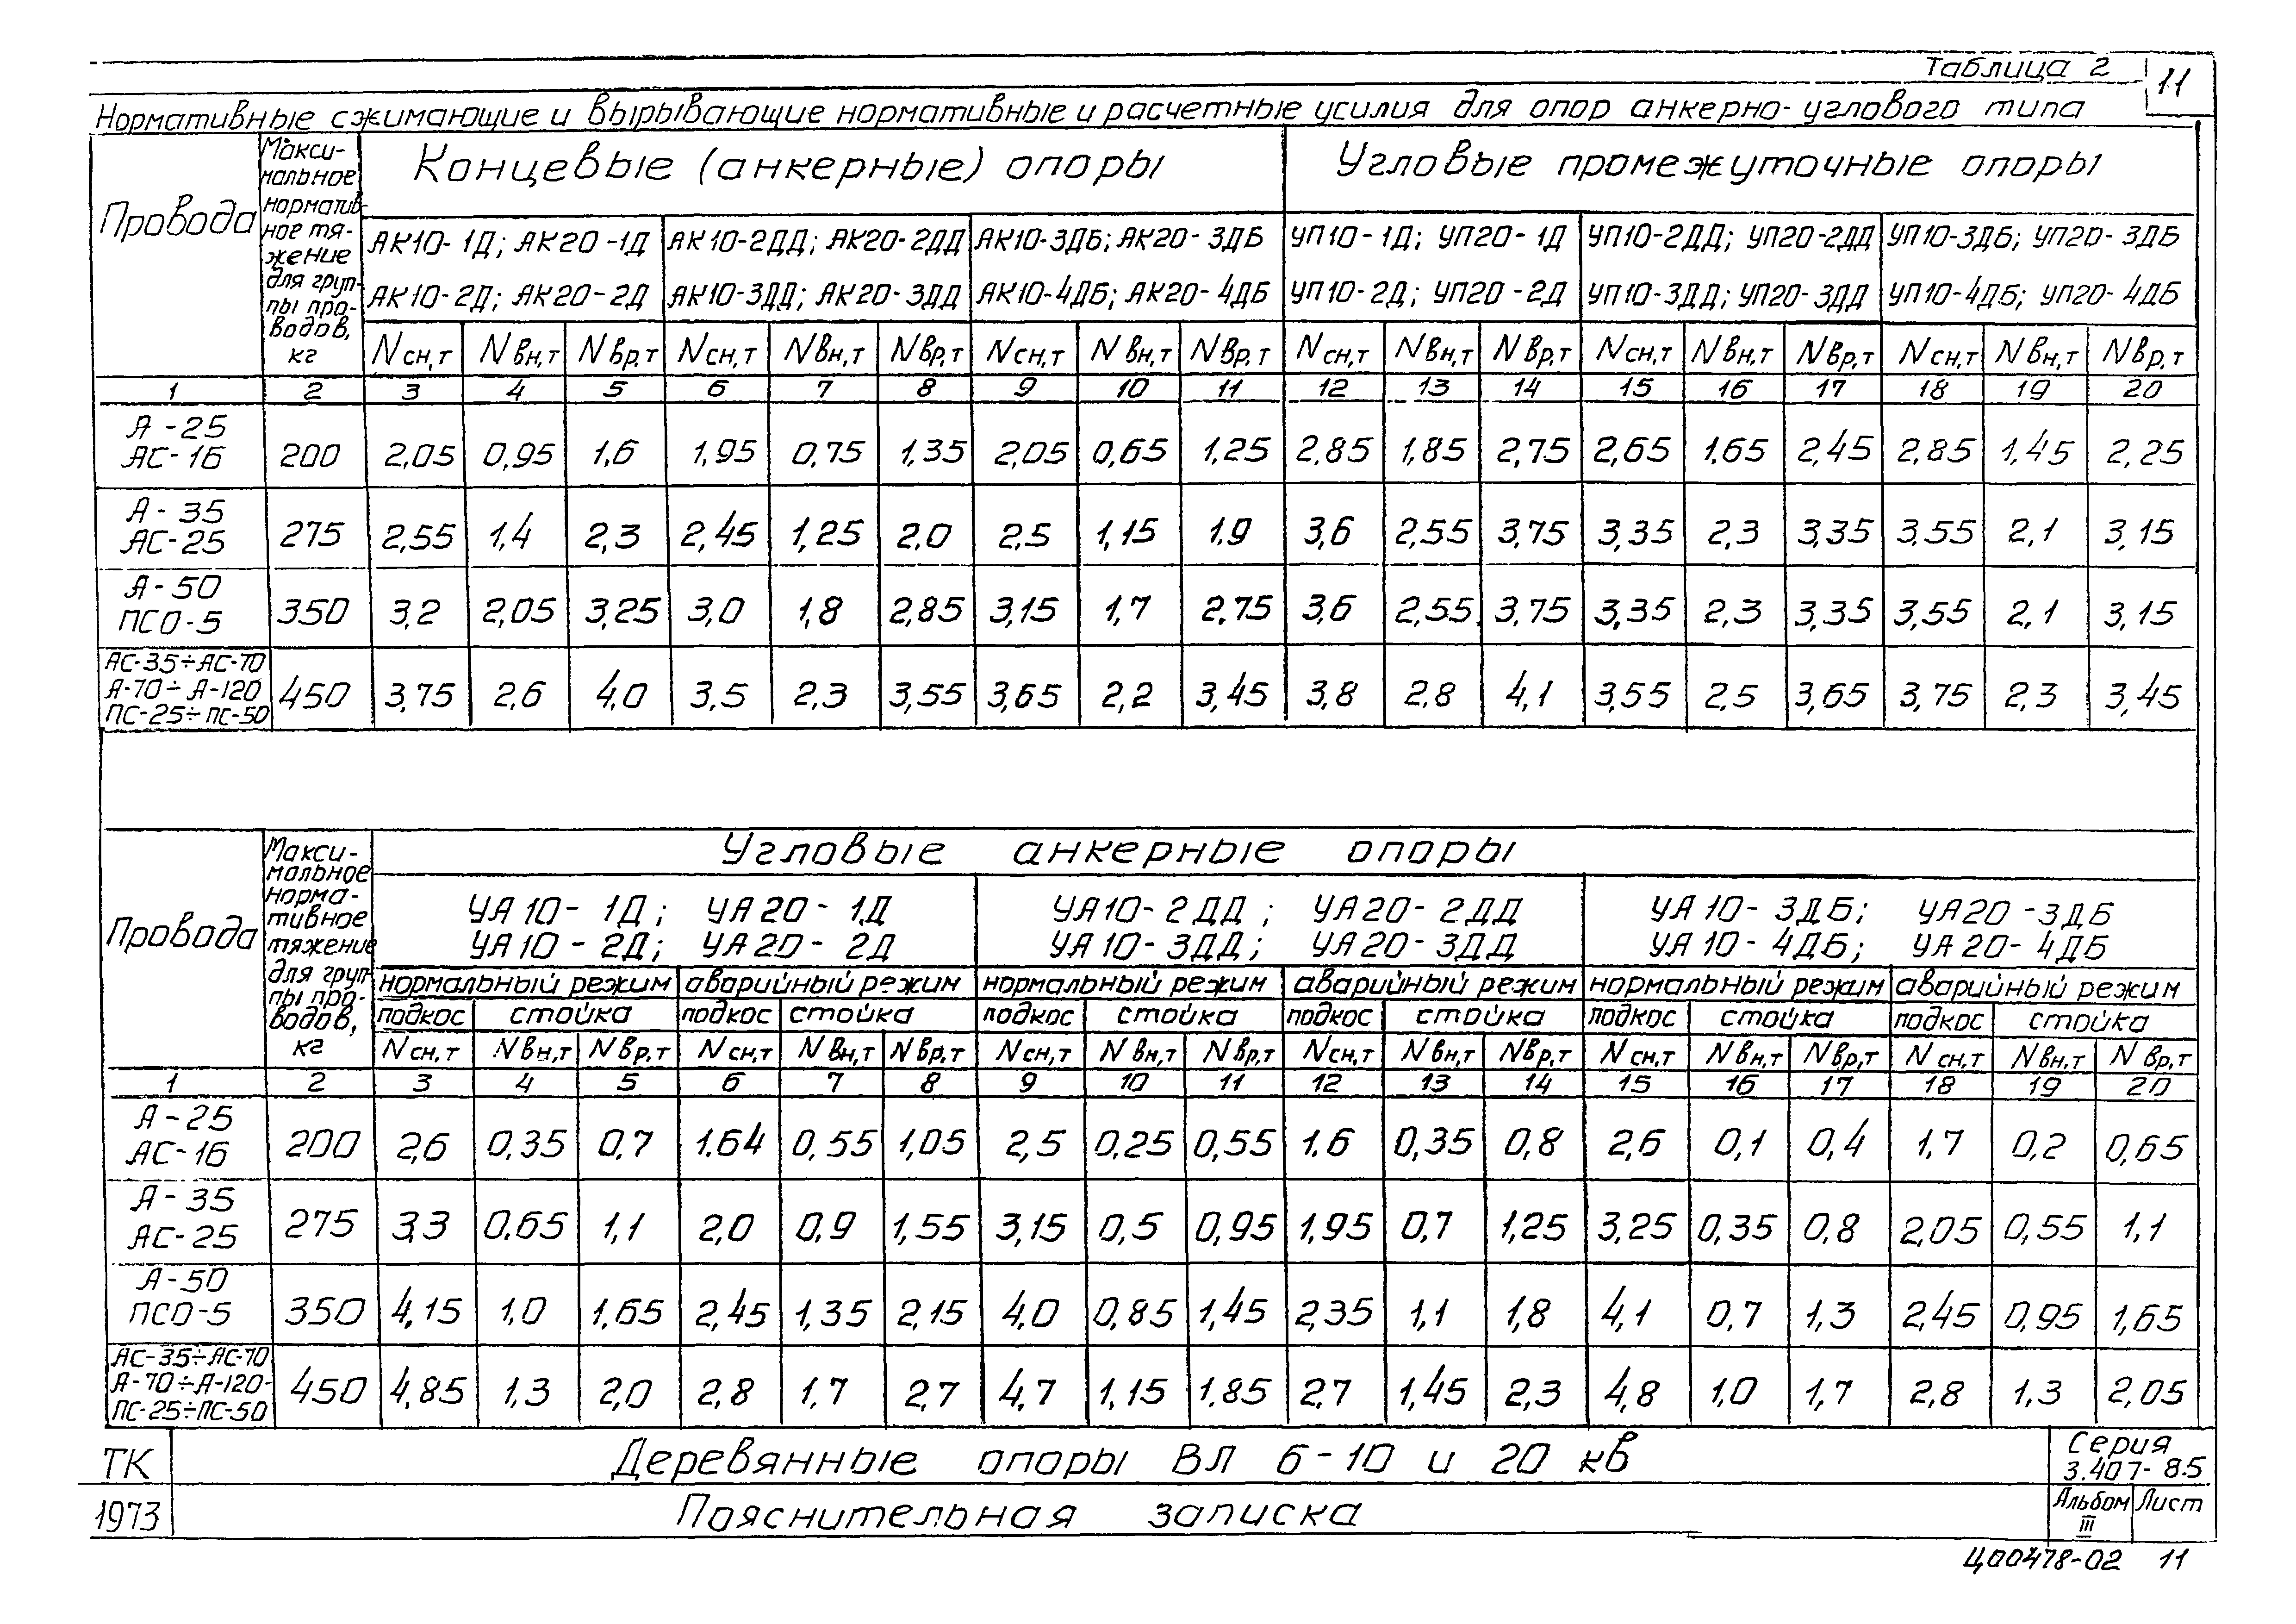 Таблица 2
11
Нормативные сжимающие и вырывающие нормативные и расчетные усилия для опор анкерно-углового типа
Провода
Макси-
мальное
норматив-
ное тя-
жение
для груп-
пы про-
водов,
кг
Концевые (анкерные) опоры
Угловые промежуточные опоры
АК10-1Д; АК20-1Д
АК10-2Д; АК20-2Д
АК10-2ДД; АК20-2ДД
АК10-3ДД; АК20-3ДД
АК10-3ДБ; АК20-3ДБ
АК10-4ДБ; АК20-4ДБ
УП10-1Д; УП20-1Д
УП10-2Д; УП20-2Д
УП10-2ДД; УП20-2ДД
УП10-3ДД; УП20-3ДД
УП10-3ДБ; УП20-3ДБ
УП10-4ДБ; УП20-4ДБ
Nсн,т Nвн,т Nвр,т Nсн,т Nвн,т Nвр,т Nсн,т Nвн,т Nвр,т Nсн,т Nвн,т Nвр,т Nсн,т Nвн,т Nвр,т Nсн,т Nвн,т Nвр,т
1 2 3 4 5 6 7 8 9 10 11 12 13 14 15 16 17 18 19 20
А-25
АС-16
200 2,05 0,95 1,6 1,95 0,75 1,35 2,05 0,65 1,25 2,85 1,85 2,75 2,65 1,65 2,45 2,85 1,45 2,25
А-35
АС-25
275 2,55 1,4 2,3 2,45 1,25 2,0 2,5 1,15 1,9 3,6 2,55 3,75 3,35 2,3 3,35 3,55 2,1 3,15
А-50
ПСО-5
350 3,2 2,05 3,25 3,0 1,8 2,85 3,15 1,7 2,75 3,6 2,55 3,75 3,35 2,3 3,35 3,55 2,1 3,15
АС-35÷АС-70
А-70÷А-120
ПС-25÷ПС-50
450 3,75 2,6 4,0 3,5 2,3 3,55 3,65 2,2 3,45 3,8 2,8 4,1 3,55 2,5 3,65 3,75 2,3 3,45
Провода
Макси-
мальное
норма-
тивное
тяжение
для груп-
пы про-
водов,
кг
Угловые анкерные опоры
УА10-1Д; УА20-1Д
УА10-2Д; УА20-2Д
УА10-2ДД; УА20-2ДД
УА10-3ДД; УА20-3ДД
УА10-3ДБ; УА20-3ДБ
УА10-4ДБ; УА20-4ДБ
нормальный режим аварийный режим нормальный режим аварийный режим нормальный режим аварийный режим
подкос стойка подкос стойка подкос стойка подкос стойка подкос стойка подкос стойка
Nсн,т Nвн,т Nвр,т Nсн,т Nвн,т Nвр,т Nсн,т Nвн,т Nвр,т Nсн,т Nвн,т Nвр,т Nсн,т Nвн,т Nвр,т Nсн,т Nвн,т Nвр,т
1 2 3 4 5 6 7 8 9 10 11 12 13 14 15 16 17 18 19 20
А-25
АС-16
200 2,6 0,35 0,7 1.64 0,55 1,05 2,5 0,25 0,55 1.6 0,35 0,8 2,6 0,1 0,4 1,7 0,2 0,65
А-35
АС-25
275 3,3 0,65 1,1 2,0 0,9 1,55 3,15 0,5 0,95 1,95 0,7 1,25 3,25 0,35 0,8 2,05 0,55 1,1
А-50
ПСО-5
350 4,15 1,0 1,65 2,45 1,35 2,15 4,0 0,85 1,45 2,35 1,1 1,8 4,1 0,7 1,3 2,45 0,95 1,65
АС-35÷АС-70
А-70÷А-120
ПС-25÷ПС-50
450 4,85 1,3 2,0 2,8 1,7 2,7 4,7 1,15 1.85 2,7 1,45 2,3 4,8 1,0 1,7 2,8 1,3 2,05
ТК
1973
Деревянные опоры ВЛ 6-10 и 20 кв
Пояснительная записка
Серия
3.407-85
Альбом
III
Лист
Ц00478-02 11